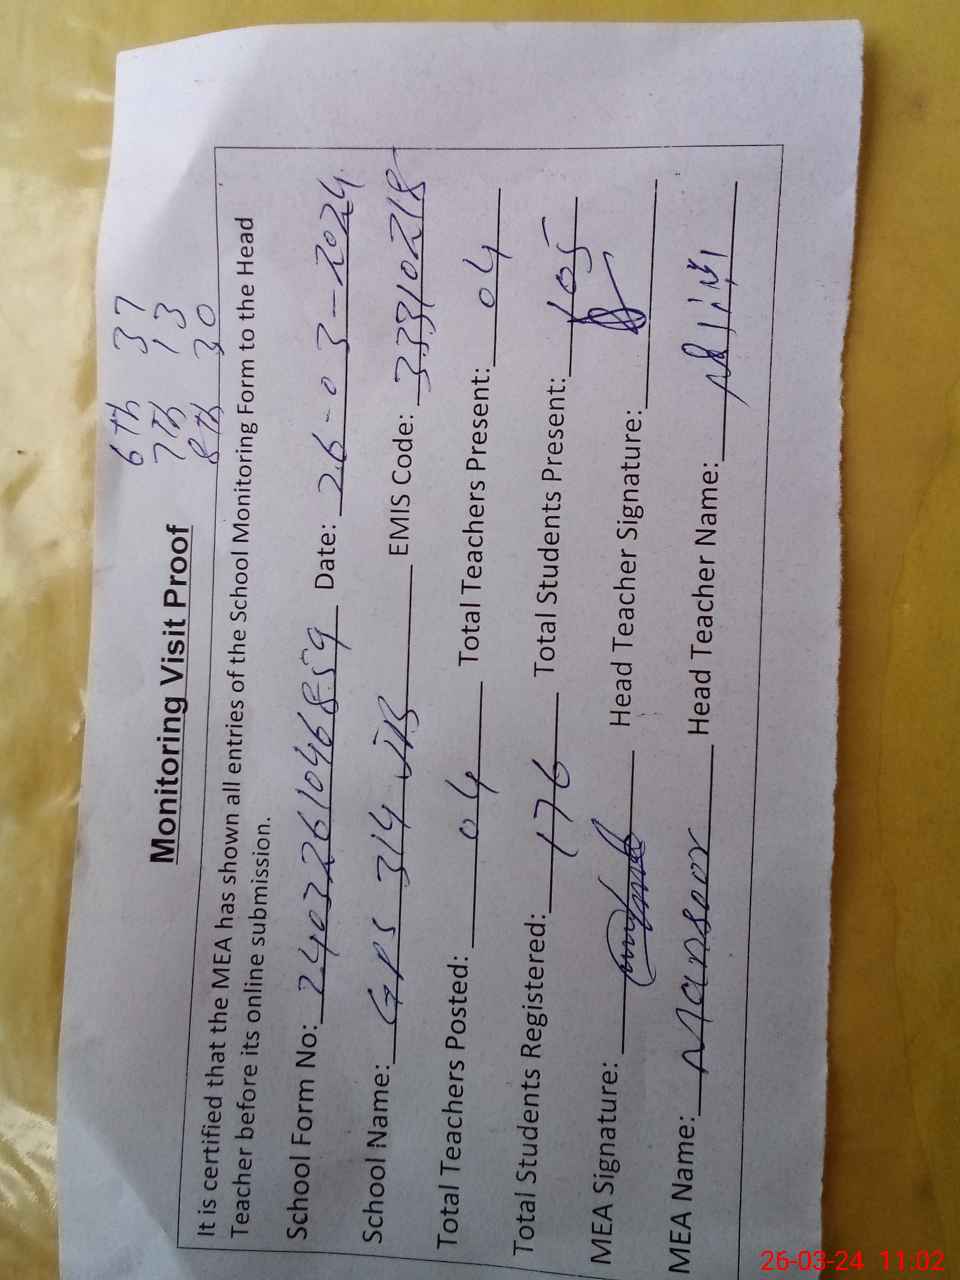 6th 37
7th 13
8th 30
Monitoring Visit Proof
It is certified that the MEA has shown all entries of the School Monitoring Form to the Head
Teacher before its online submission.
School Form No: 24032610468 59 Date: 26-03-2024
School Name: GPS 314 JB EMIS Code: 33310218
Total Teachers Posted: 04 Total Teachers Present: 04
Total Students Registered: 176 Total Students Present: 105
MEA Signature: Head Teacher Signature:
MEA Name: Mansoor Head Teacher Name:
26-03-24 11:02